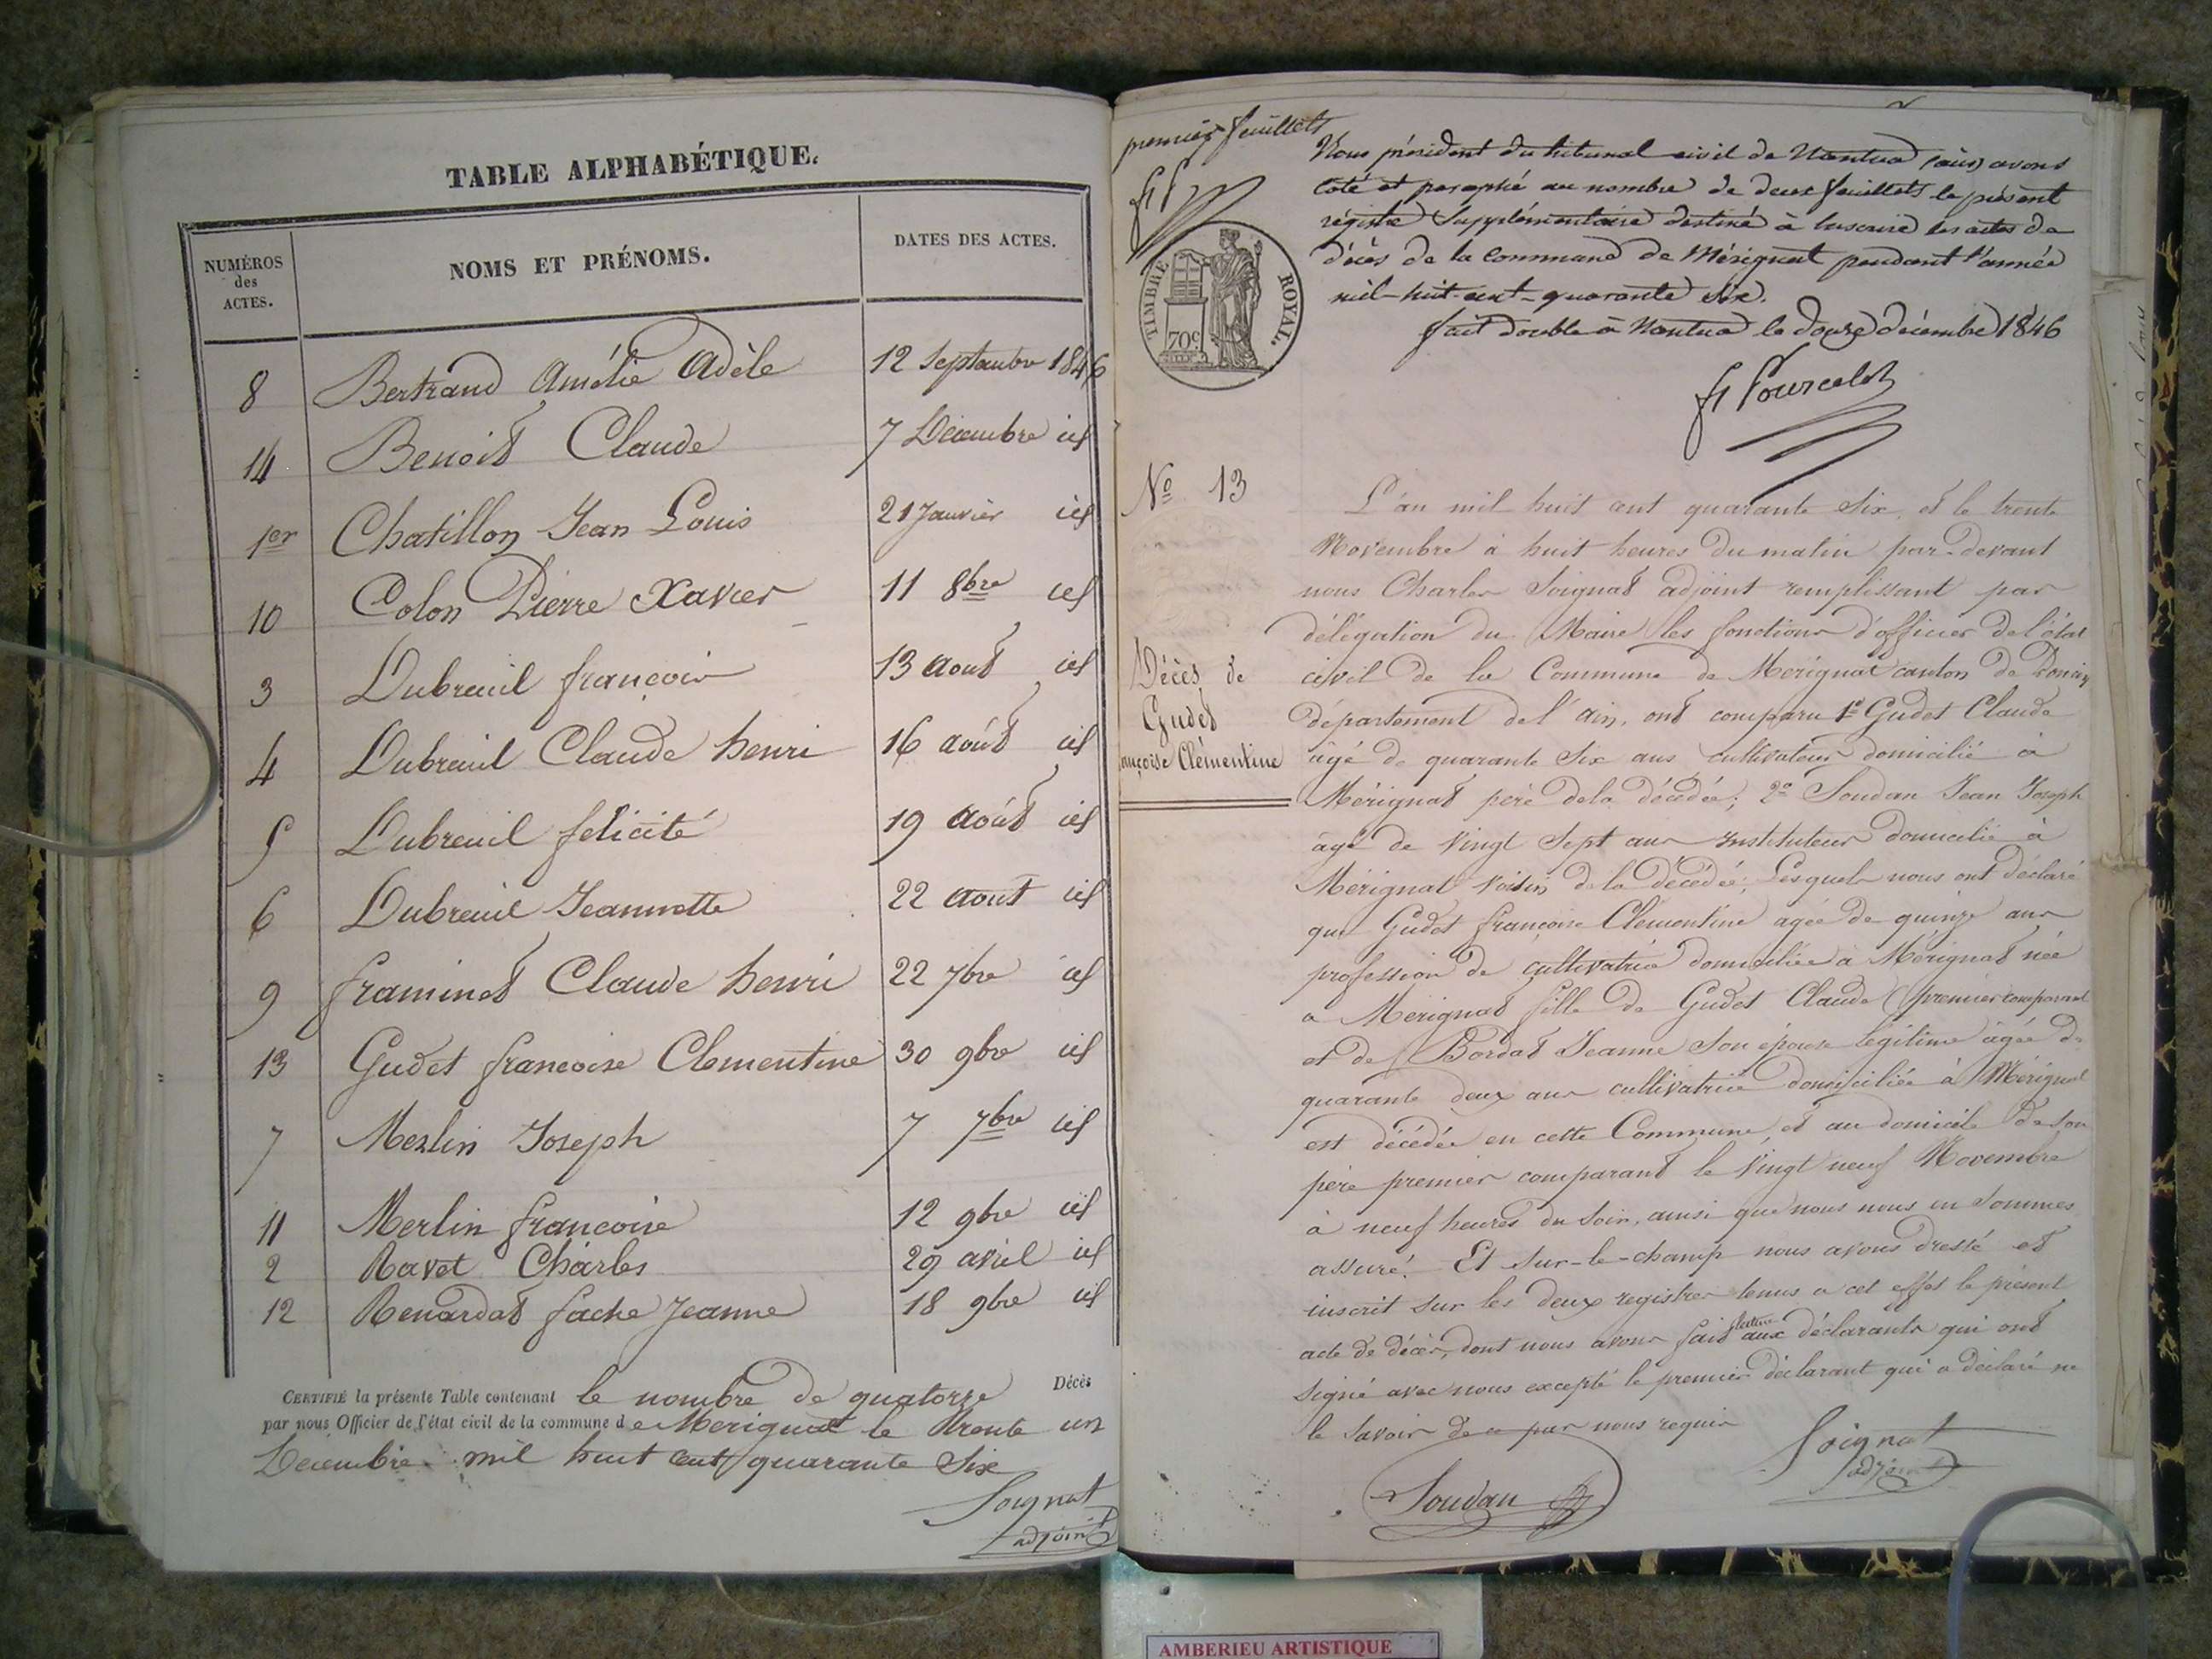 TABLE ALPHABÉTIQUE.
NUMÉROS des ACTES. NOMS ET PRÉNOMS. DATES DES ACTES.
8 Bertrand Amélie Adèle 12 Septembre 1846
14 Benoit Claude 7 Décembre id
1er Chatillon Jean Louis 21 Janvier id
10 Colon Pierre Xavier 11 8bre id
3 Dubreuil françois 13 aout id
4 Dubreuil Claude henri 16 août id
5 Dubreuil felicité 19 août id
6 Dubreuil Jeannette 22 aout id
9 framinet Claude henri 22 7bre id
13 Gudet francoise Clementine 30 9bre id
7 Merlin Joseph 7 7bre id
11 Merlin francoise 12 9bre id
2 Ravet Charles 29 avril id
12 Renardat fache Jeanne 18 9bre id
CERTIFIÉ la présente Table contenant le nombre de quatorze Décès
par nous Officier de l'état civil de la commune de Merignat le trente un
Décembre mil huit cent quarante Six
Soignat
adjoint
premier feuillets
Nous président du tribunal civil de Nantua (ain) avons
coté et paraphé au nombre de deux feuillets le présent
régistre Supplémentaire destiné à inscrire les actes de
décès de la commune de Mérignat pendant l'année
mil-huit-cent-quarante six.
fait double à Nantua le douze décembre 1846
TIMBRE ROYAL.
70c
No 13
Décès de
Gudet
ançoise Clémentine
L'an mil huit cent quarante Six, et le trente
Novembre à huit heures du matin par-devant
nous Charles Soignat adjoint remplissant par
délégation du Maire les fonctions d'officier de l'état
civil de la Commune de Merignat canton de Poncin
département de l'ain, ont comparu 1o Gudet Claude
âgé de quarante Six ans cultivateur domicilié à
Mérignat père de la décédée; 2o Soudan Jean Joseph
âgé de Vingt Sept ans Instituteur domicilié à
Mérignat Voisin de la décédée; Lesquels nous ont déclaré
que Gudet françoise Clementine agée de quinze ans
profession de cultivatrice domiciliée à Mérignat née
a Merignat fille de Gudet Claude premier comparant
et de Bordat Jeanne Son épouse légitime âgée de
quarante deux ans cultivatrice domiciliée à Mérignat
est décédée en cette Commune, et au domicile de Son
père premier comparant le Vingt neuf Novembre
à neuf heures du Soir, ainsi que nous nous en Sommes
assuré. Et Sur-le-champ nous avons dressé et
inscrit Sur les deux registres tenus a cet effet le présent
acte de décès, dont nous avons fait lecture aux déclarants qui ont
Signé avec nous excepté le premier déclarant qui a déclaré ne
le Savoir de ce par nous requis
Soudan
Soignat
adjoint
AMBERIEU ARTISTIQUE